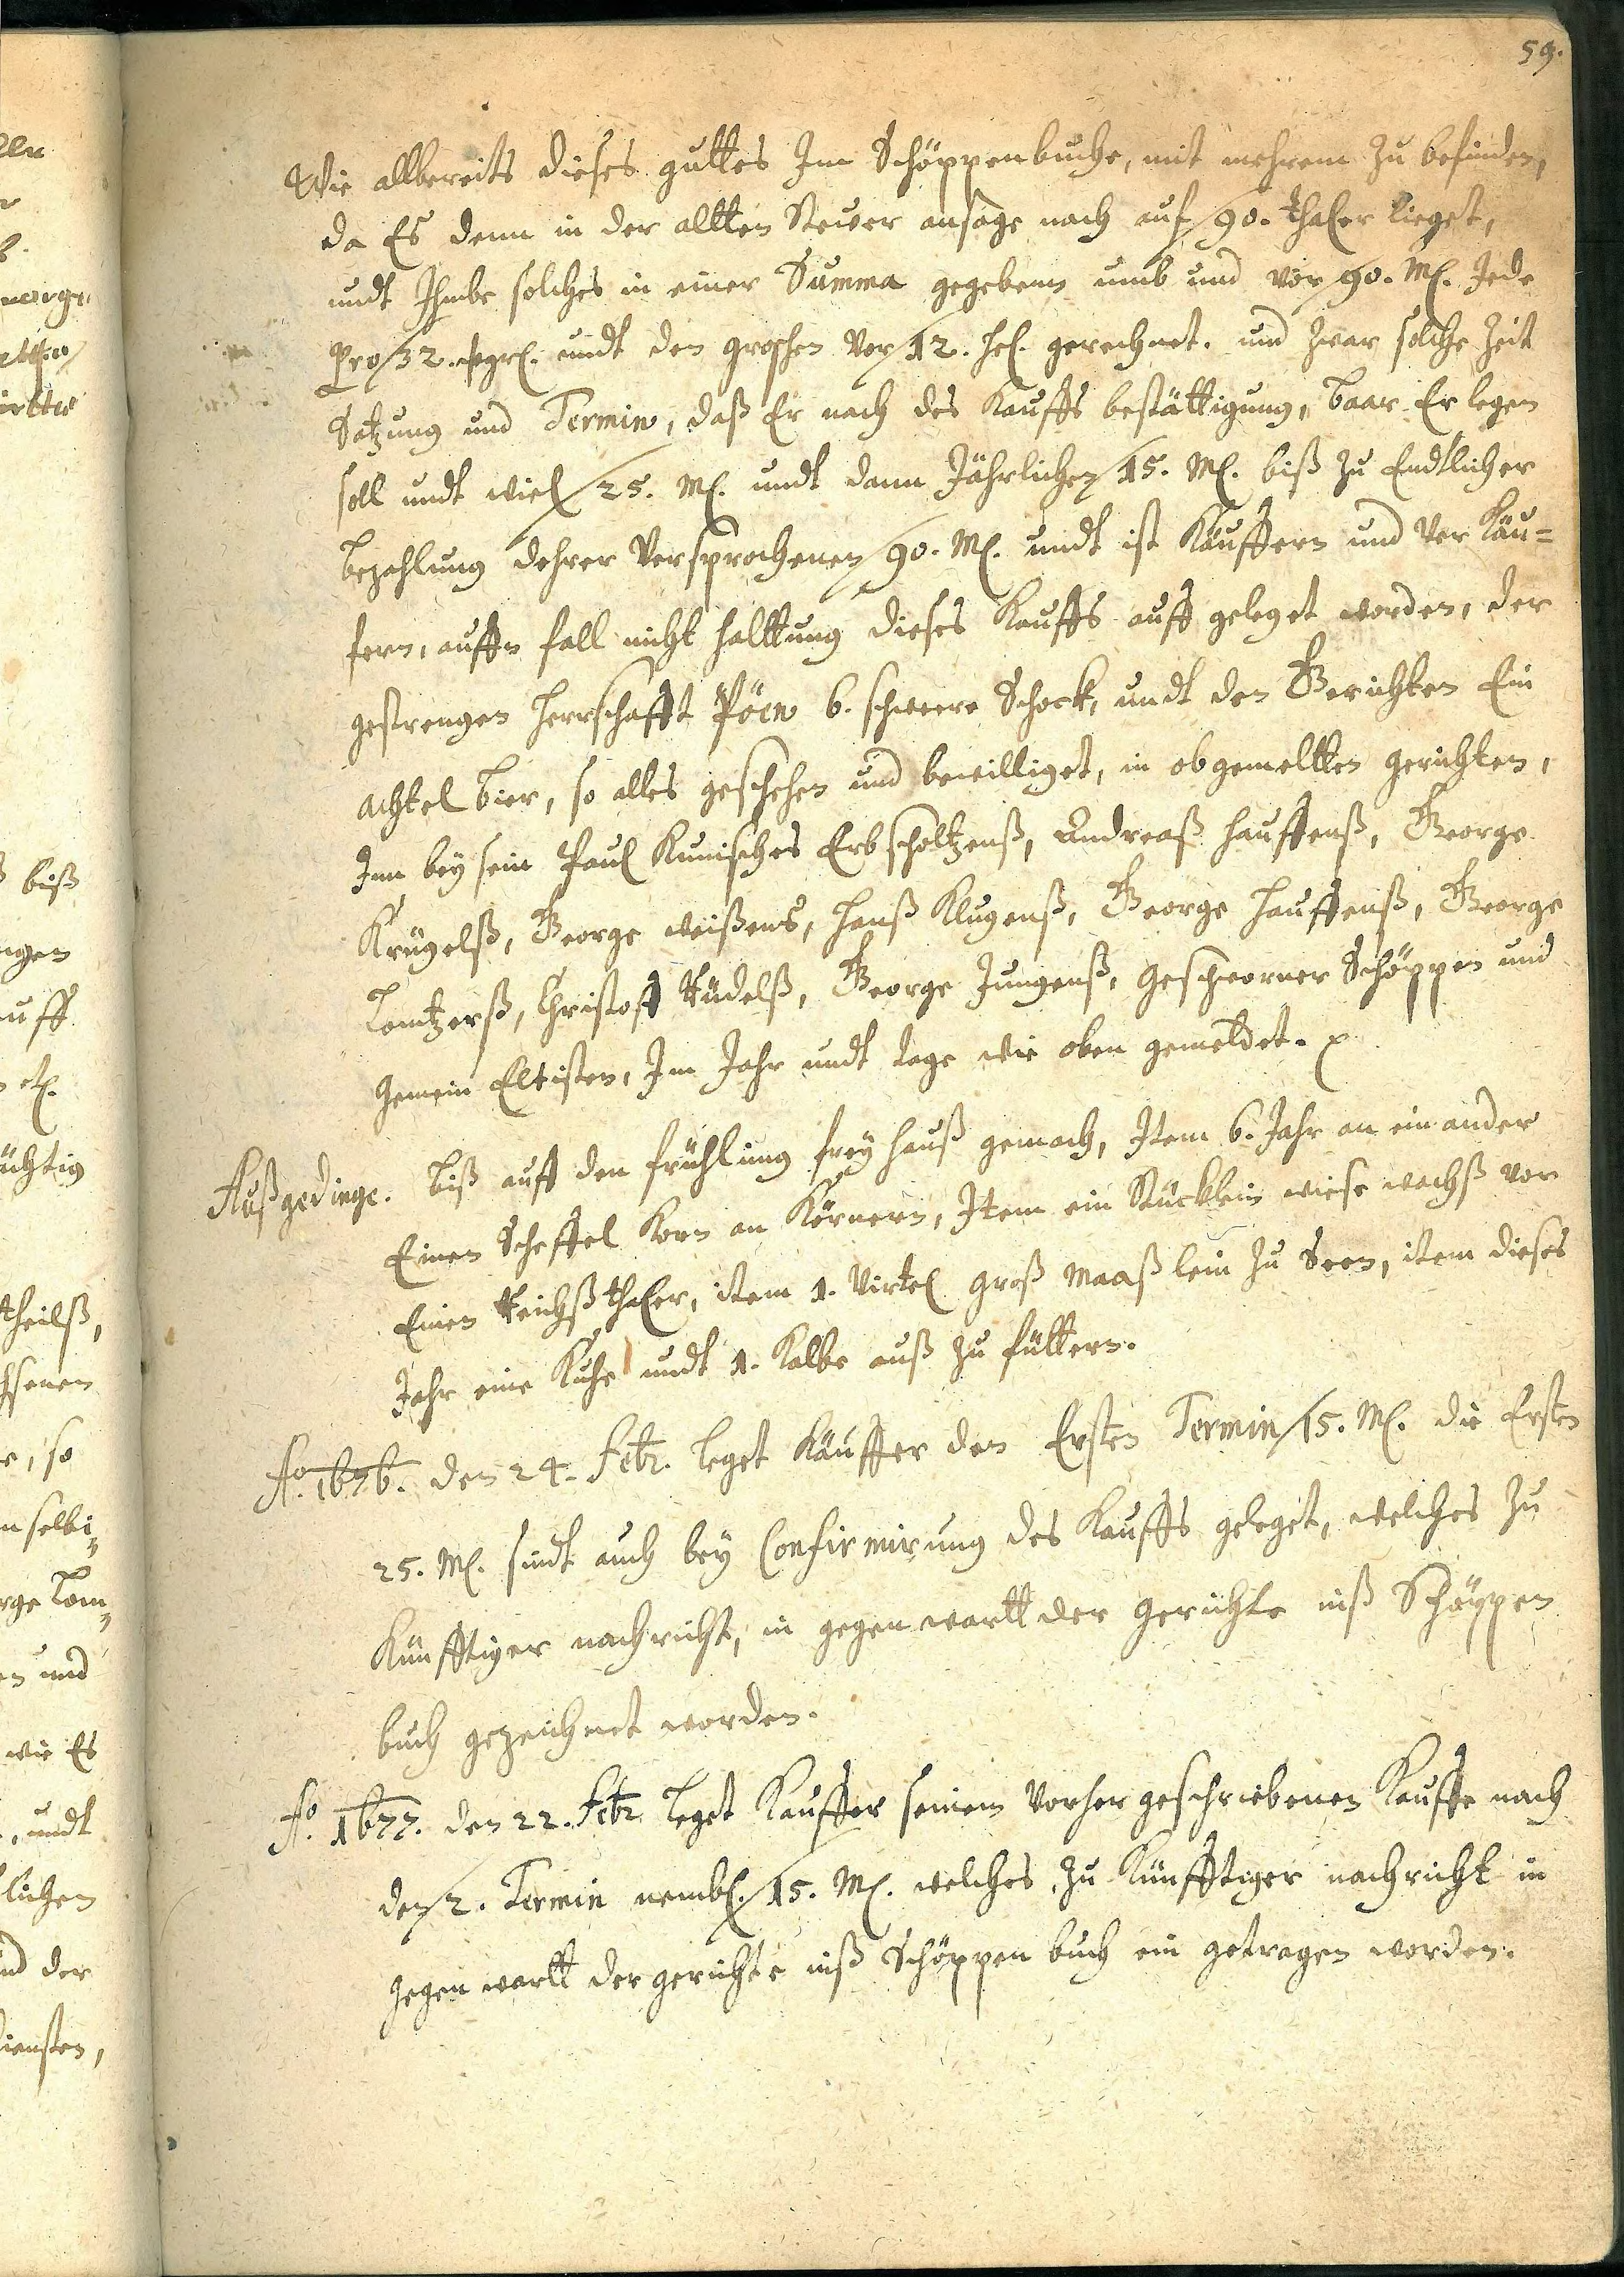 59.
Wie allbereits dieses guttes Im Schöppenbuche, mit mehrem zu befinden,
da Es denn in der allten Steuer ansage nach auf 90. thaler lieget,
undt Ihme solches in einer Summa gegeben umb und vor 90. M. Jede
pro 32. undt den groschen vor 12. hel. gerechnet. und zwar solche Zeit
Satzung und Termin, daß Er nach des Kauffs bestättigung, baar Erlegen
soll undt wiel 25. M. undt dann Jährlichen 15. M. biß zu Endtlicher
bezahlung dehrer Versprochenen 90. M. undt ist Käuffern und Ver Käu=
fern, auffn fall nicht halttung dieses Kauffs auff geleget worden, der
gestrengen Herrschafft Pöen 6. schwere Schock, undt den Gerichten Ein
achtel bier, so alles geschehen und bewilliget, in obgemeltten gerichten,
Inn bey sein Paul Kunisches Erb scholtzenß, Andreaß Hauffenß, George
Krügelß, George weißens, Hanß Klugenß, George Hauffenß, George
Lomtzerß, Christoff Rüdelß, George Jungenß, Geschworner Schöppen und
Gemein Eltisten, Im Jahr undt tage wie oben gemeldet.
Außgedinge. biß auff den frühling frey hauß gemach, Item 6. Jahr an ein ander
Einen Scheffel Korn an Körnern, Item ein Stücklein wiese wachß vor
Einen Reichß thaler, item 1. Virtel groß Maaß lein zu Seen, item dieses
Jahr eine Kuhe undt 1. Kalbe auß zu füttern.
Ao. 1676. den 24. Febr. leget Käuffer den Ersten Termin 15. M. die Ersten
25. M. sindt auch bey Confirmirung des Kauffs geleget, welches zu
Künfftiger nachricht, in gegenwartt der Gerichte inß Schöppen
buch gezeichnet worden.
Ao. 1677. den 22. Febr. leget Kauffer seinem vorhergeschriebenen Kauffe nach
den 2. Termin nembl. 15. M. welches zu Künfftiger nachricht in
gegenwartt der gerichte inß Schöppen buch ein getragen worden.